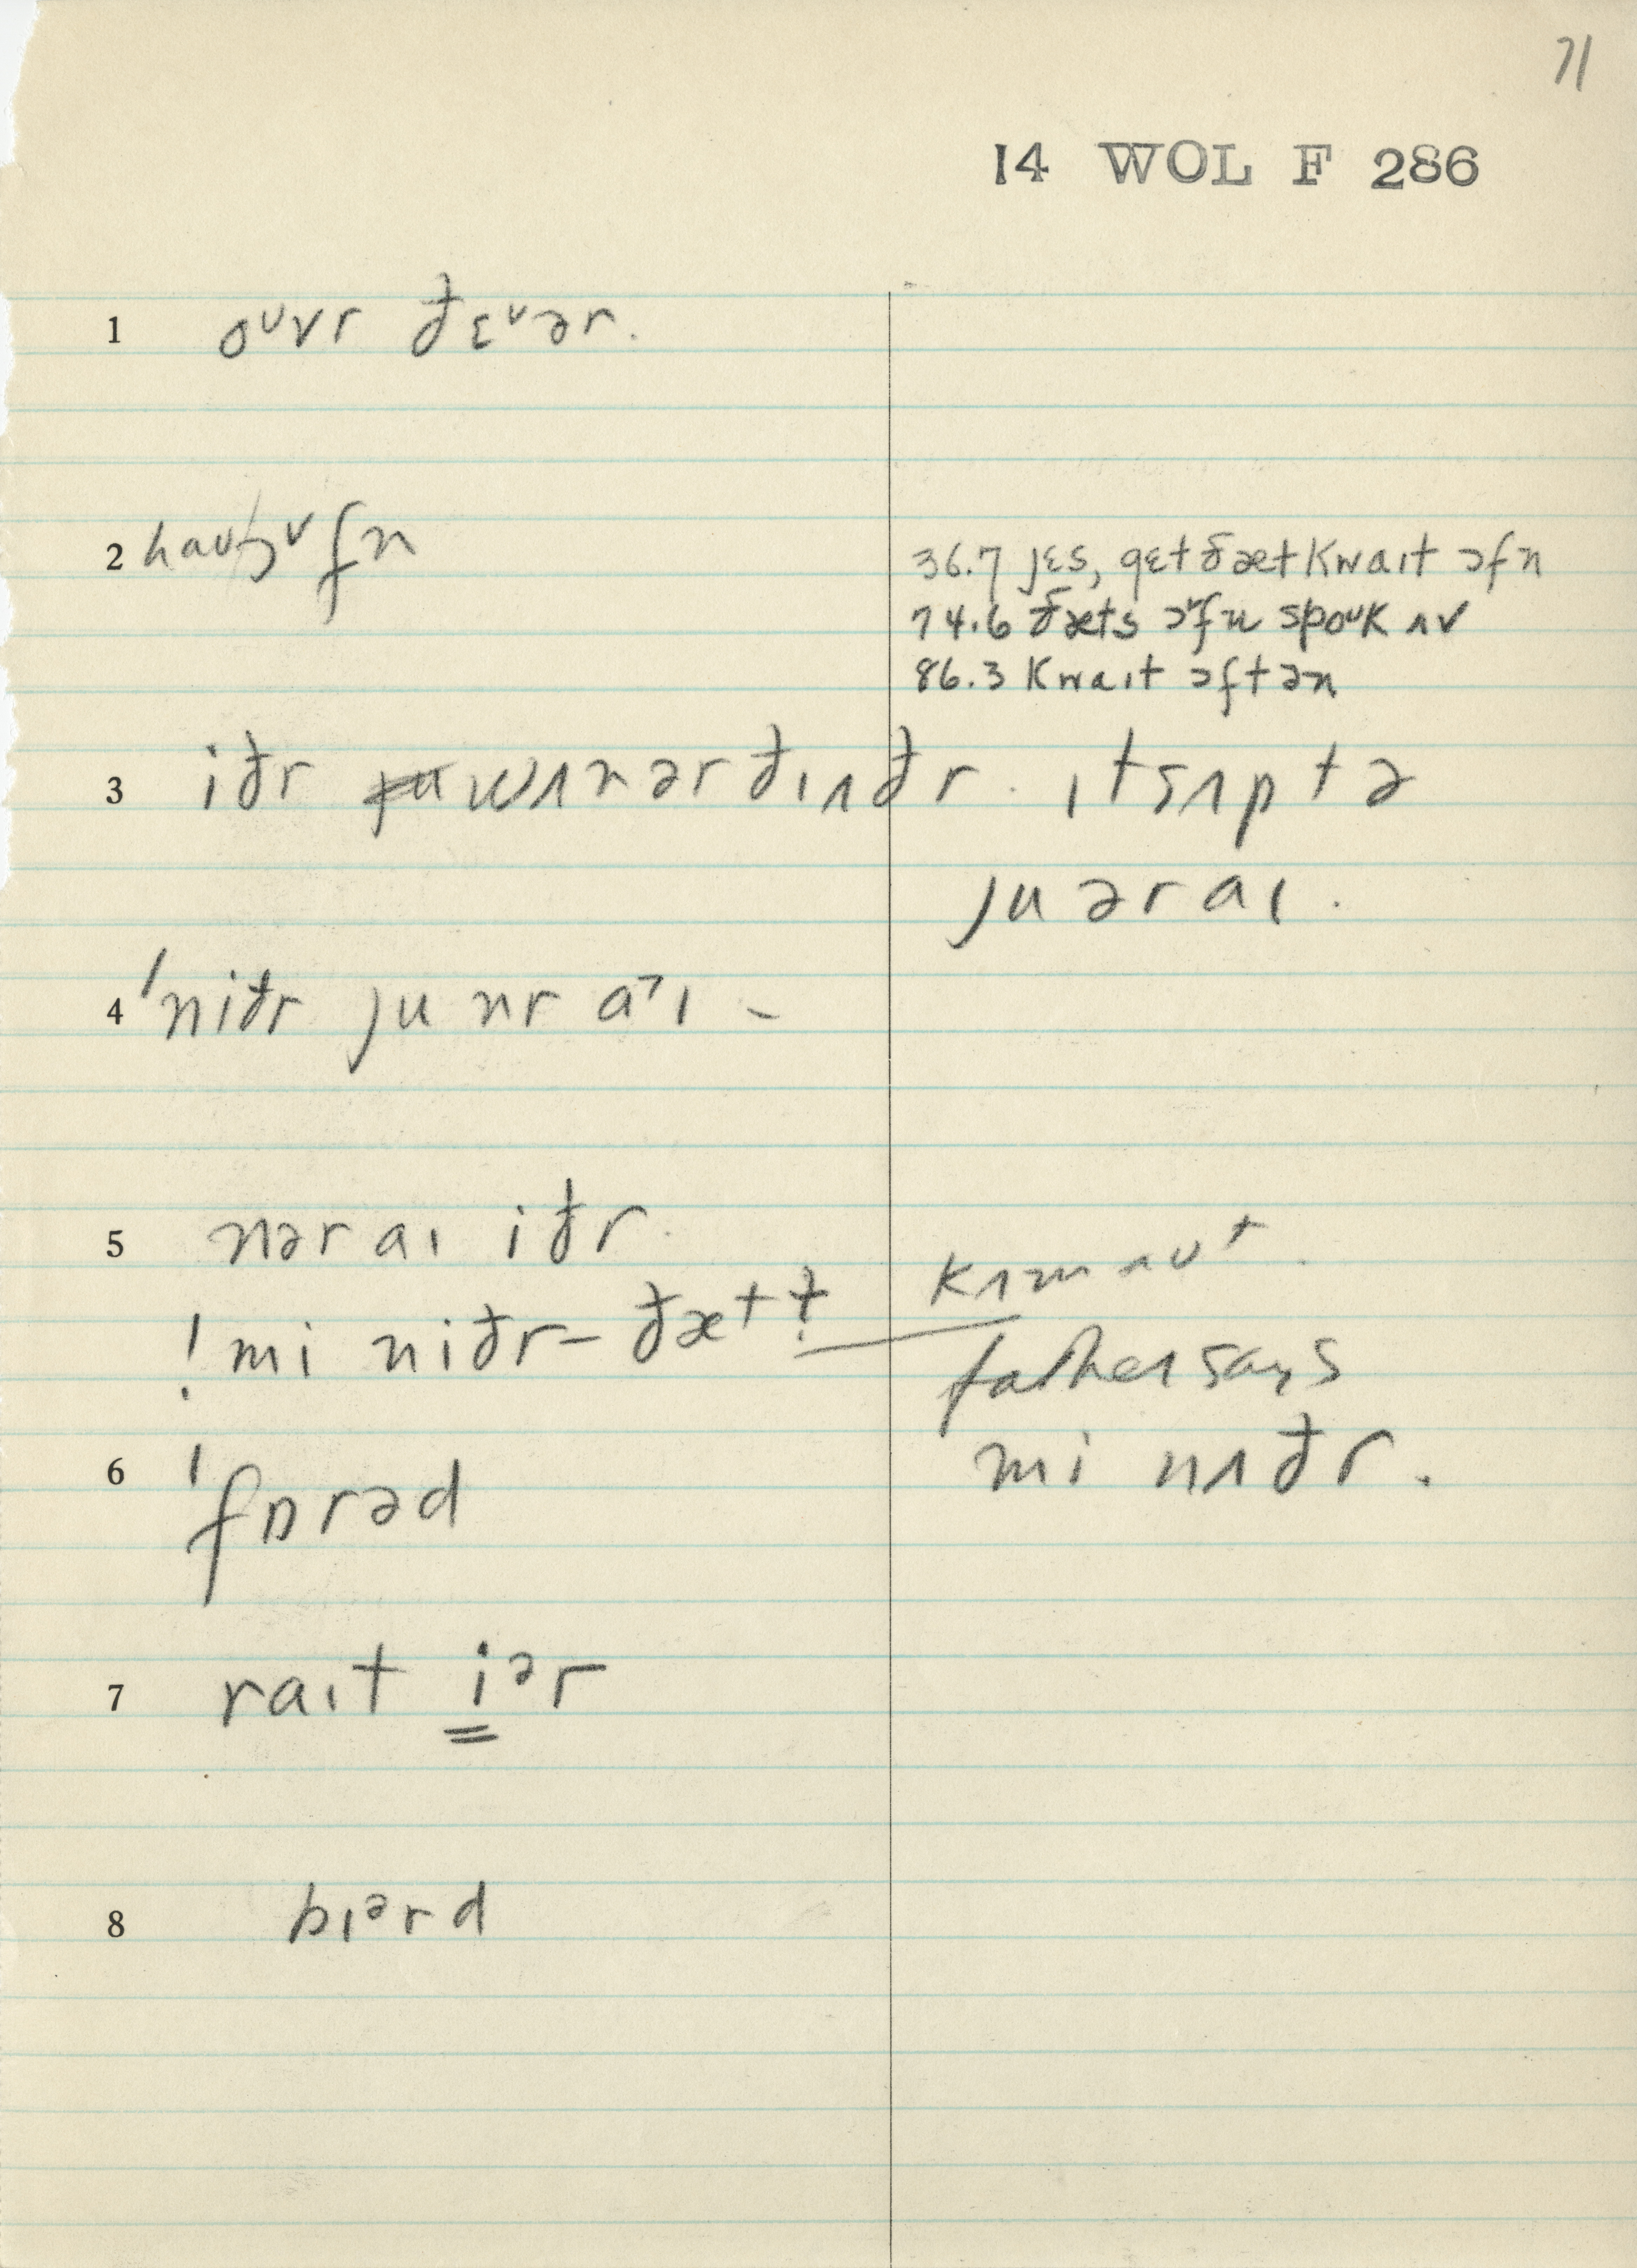 71
14 WOL F 286
1 oᴜvr ðɛ˅ər.
2 haʊɔ˅fn
36.7 jɛs, gɛt ðæt kwaɪt ɔfn
74.6 ðæts ɔ˅fn spoᴜk ʌv
86.3 kwaɪt ɔftən
3 iðr wʌnərðɪʌðr. ɪtsʌptə
juəraɪ.
4 'niðr ju nr a˃ɪ -
5 nəraɪ iðr.
kʌmaʊt.
! mi niðr – ðæt
father says
mi nʌðr.
6 'fɒrəd
7 raɪt iᵊr
8 bɪᵊrd